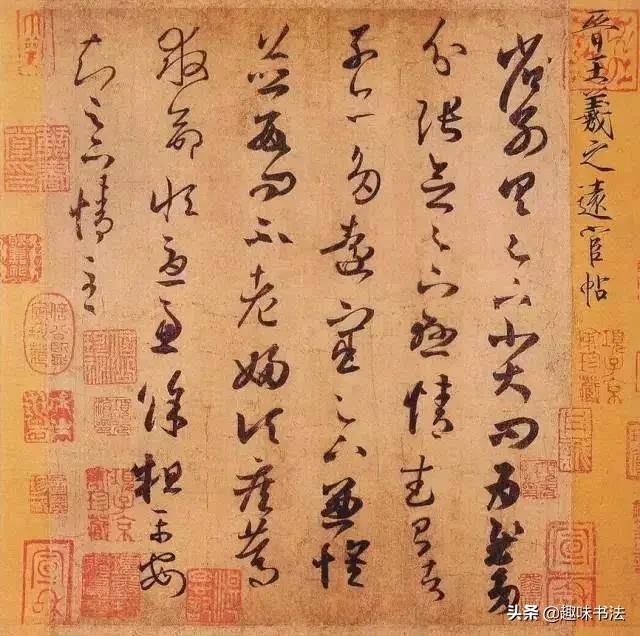 晉王羲之遠宦帖
省別具足下小大問為慰多
分張念足下懸情武昌諸
子亦多遠宦足下兼懷
並數問不老婦頃疾篤
救命恒憂慮餘粗平安
知足下情至
項子京家珍藏
头条 @趣味书法